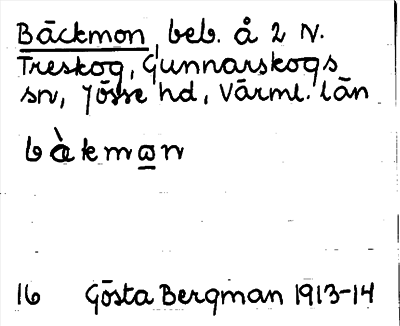 Bäckmon, beb. å 2 N.
Treskog, Gunnarskogs
sn, Jösse hd, Värml. län
bàkmωn
16 Gösta Bergman 1913-14